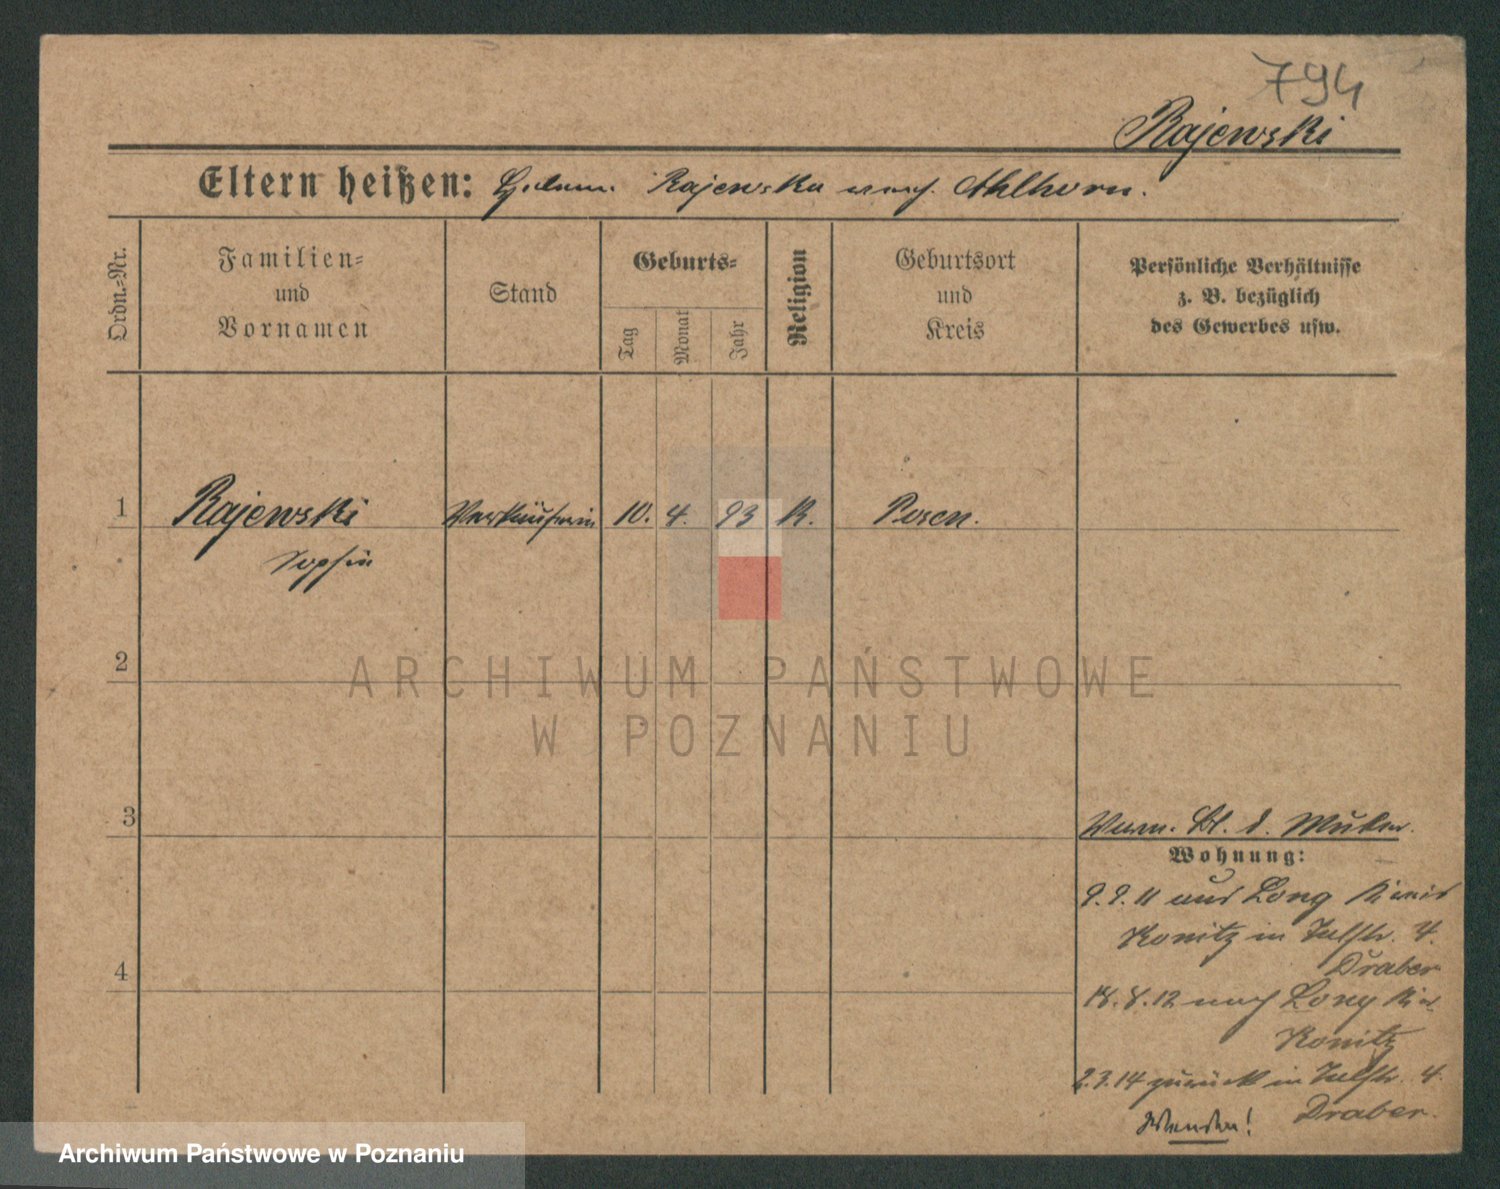 794
Rajewski
Eltern heißen: Rajewska nach Ahlhorn.
Ordn.-Nr.
Familien-
und
Vornamen
Stand
Geburts-
Tag
Monat
Jahr
Religion
Geburtsort
und
Kreis
Persönliche Verhältnisse
z. B. bezüglich
des Gewerbes usw.
1 Rajewski Verkäuferin 10. 4. 93 K. Posen.
Sophie
2
ARCHIWUM PAŃSTWOWE
W POZNANIU
3
Wohnung:
9.9.11 aus Long Kreis
Konitz in 4.
Draber
4
18.8.12 nach Long Kr.
Konitz
2.3.14 zurück in 4.
Draber.
Wenden!
Archiwum Państwowe w Poznaniu